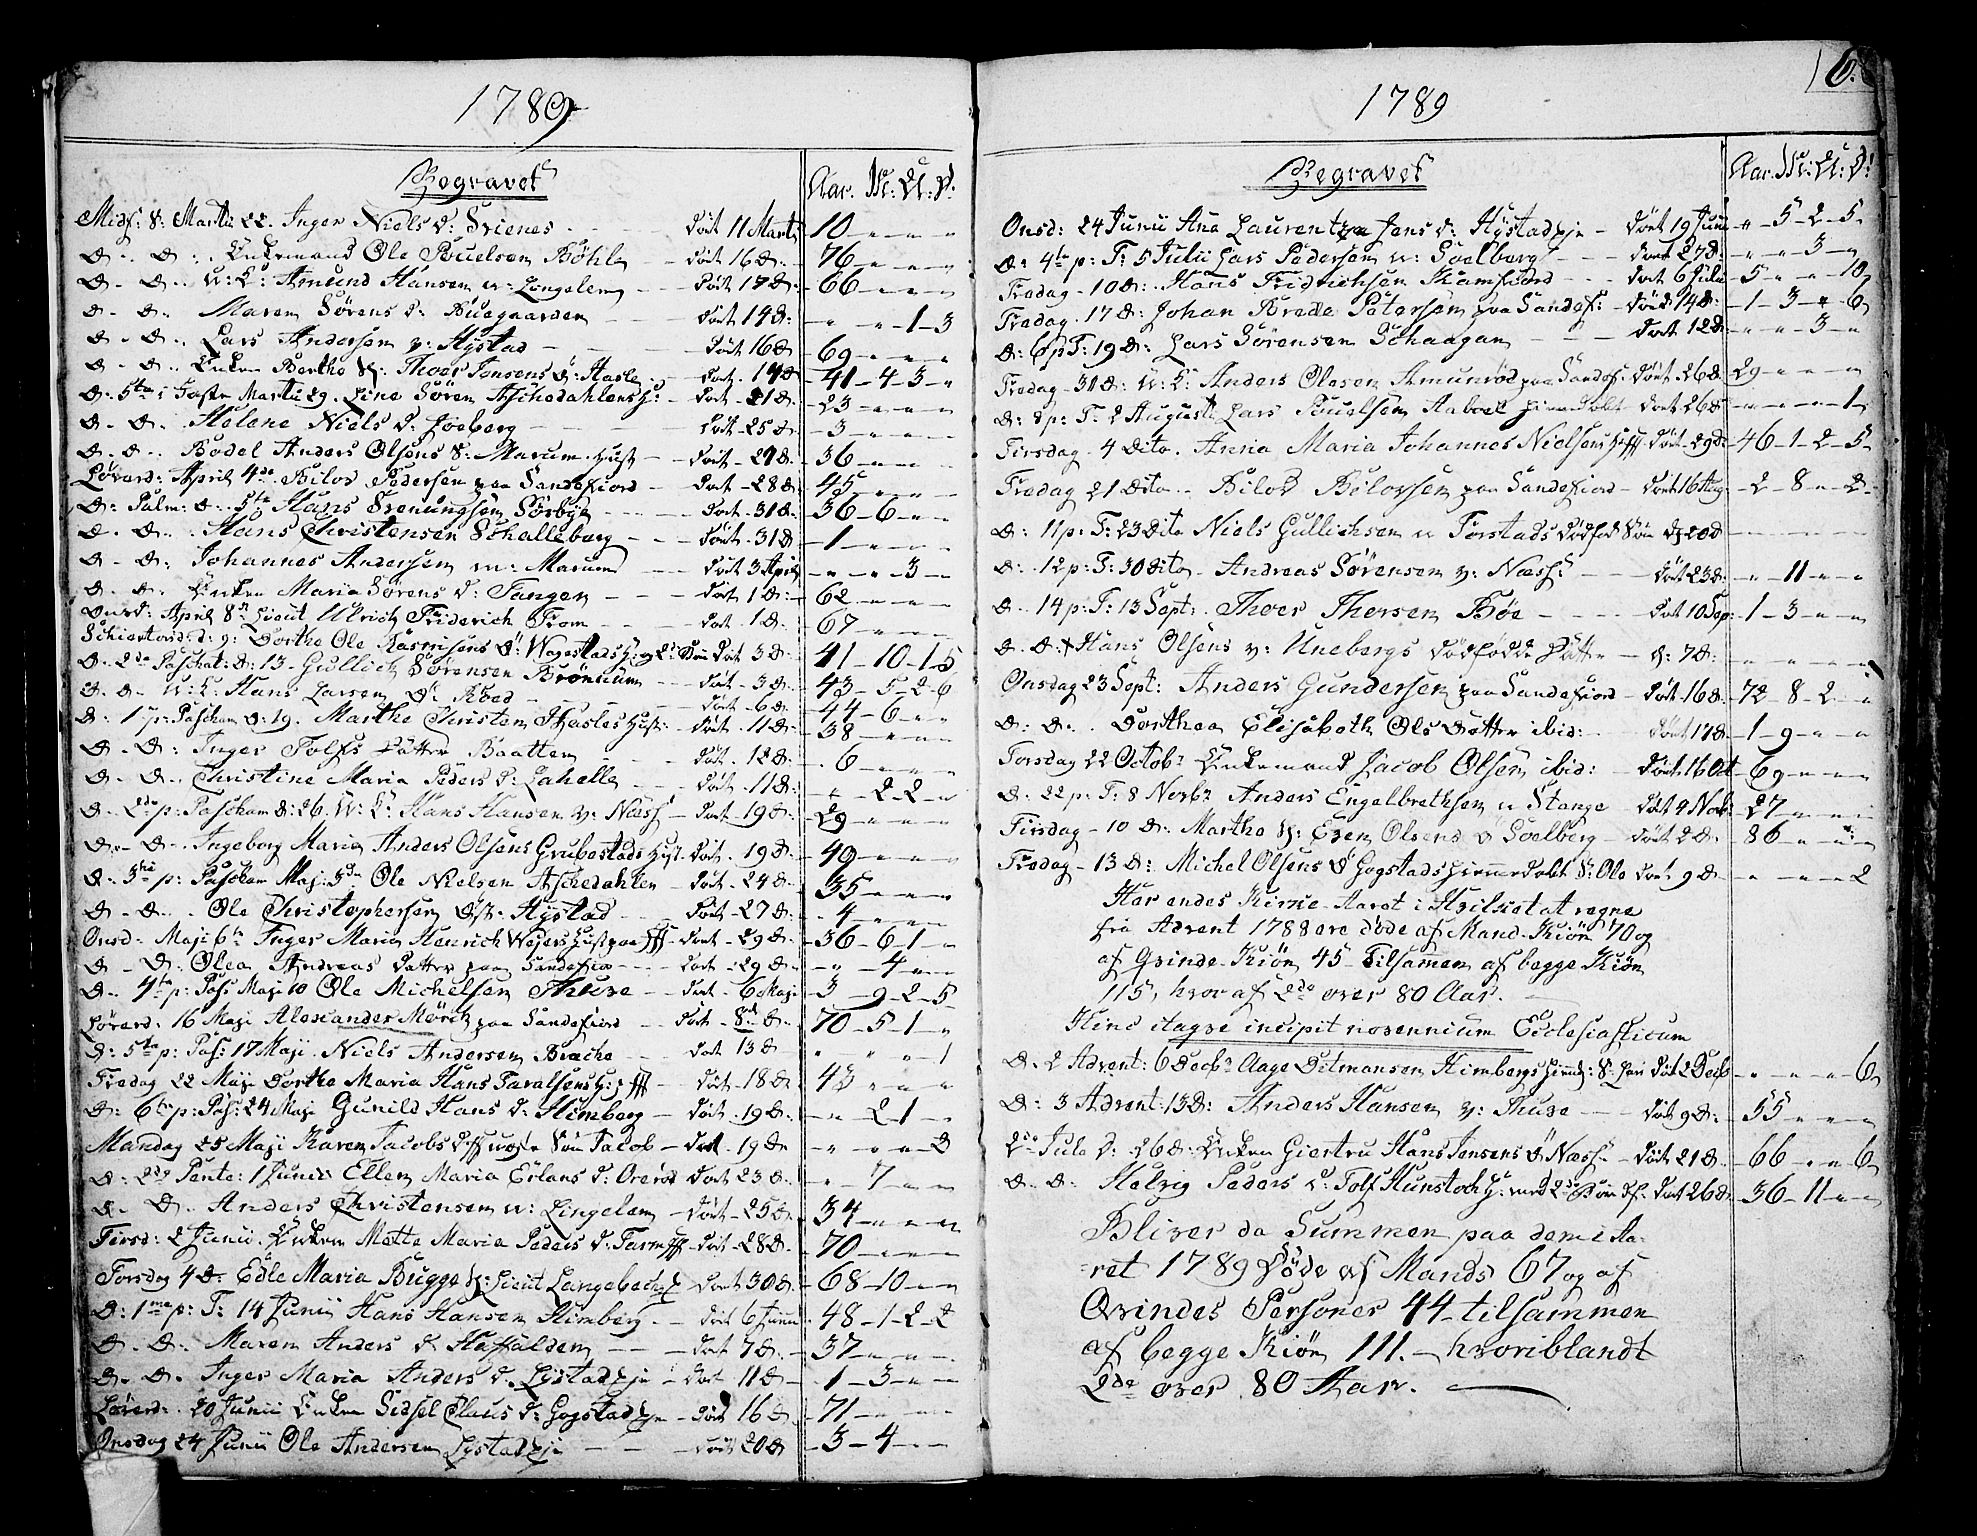 1789
Begravet
Aar. M: U: D:
Midf: S: Martii 22. Inger Niels D: Svienes Döit 11 Marti 10
D. D. Enkemand Ole Pouelsen Böhle Döit 16 D. 76
D. D. U: K: Amund Hansen v: Lingelem Döit 17 D: 66
D. D. Maren Sörens D: Buegaarden Döit 14 D: 1-3
D. D. Lars Andersen v: Hystad Döit 16 D. 69
D. D. Enken Berthe Thoer Jensens Ö: Hasle Döit 14 D 41-4-3
D. 5te i Faste Martii 29. Line Sören Aschedahlens H: Döit 21 D. 23
D. D. Helene Niels D. Goeberg Döit 25 D. 3
D. D. Bodel Anders Olsens S: Marum Hust Döit 27 D. 36
Löverd: April 4de Bilod Pedersen paa Sandefiord Döit 28 D. 45
D: Palm: D: 5te Hans Svenungsen Sörbye Döit 31 D: 36-6
D. D. Hans Christensen Schalleberg Döit 31 D 1
D. D. Johannes Andersen v: Marum Döit 3 April 3
D. D. Enken Maria Sörens D: Tangen Döit 1 D: 62
Onsd: April 8de Lieut Ulrich Friderich From Döit 1 D. 67
Schiertorsd: 9: Dorthe Ole Rasmisens Ö: Wegestads H: Döit 3 D. 41-10-1-5
D. 2de Paschat: D: 13 Gullich Sörensen Brönium Döit 3 D. 43-5-2-6
D. D. U: K: Hans Larsen Ö: Roed Döit 6 D: 44-6
D: 1 p: Pascham D: 19. Marthe Christen Hasles Hust: Döit 11 D: 38
D. D: Inger Tolfs Dätter Baatten Döit 12 D: 6
D. D. Christine Maria Peders D: Lahelle Döit 11 D: 2-2
D. 2de p: Pascham D: 26. U: K: Hans Hansen v: Næss Döit 19 D: 29
D. D. Ingeborg Maria Anders Olsens Grubestads Hust Döit 19 D: 49
D. 3tie p: Pascham Maji 3de Ole Nielsen Aschedahlen Döit 24 D. 35
D. D. Ole Christophersen Öst. Hystad Döit 27 D: 4
Onsd: Maji 6te Inger Maria Henrich Wejers Hust paa Döit 29 D: 36-6-1
D. D: Olea Andreas Datter paa Sandefior Döit 29 D. 4
D. 4te p: Pas: Maji 10 Ole Michelsen Thure Döit 6 Maji 3-9-2-5
Löverd: 16 Maji Alexander Mörch paa Sandefiord Döit 8de D. 70-5-1
D: 5te p: Pas: 17 Maji. Niels Andersen Brache Döit 13 D 1
Fredag 22 Maji Dorthe Maria Hans Taralsens H: Döit 18 D: 43
D: 6te p: Pas: 24 Maji Gunild Hans D: Himberg Döit 19 D: 2-1
Mandag 25 Maji Karen Jacobs D: uægte Sön Jacob Döit 19 D 3
D: 2de Pente: 1 Junii Ellen Maria Erlans D: Orerød Döit 23 D. 7
D. D. Anders Christensen v: Lingelem Döit 25 D: 34
Tirsd: 2 Junii. Enken Mette Maria Peders D. Farm Döit 28 D. 70
Torsdag 4 D: Edle Maria Bugge Lieut Langebechs Döit 30 D 68-10
D: 1me p: T: 14 Junii Hans Hansen Himberg Döit 6 Junii 48-1-2-2
D. D. Maren Anders D Haffalden Döit 7 D. 37
D. D. Inger Maria Anders D. Lystad Eje Döit 11 D 1-3
Löverd: 20 Junii Enken Sidsel Claus D: Gogstad Eje Döit 16 D. 71
Onsdag 24 Junii Ole Andersen Lystad Eje Döit 20 D 3-4
1789
6.
Begravet
Aar. M: U: D:
Onsd: 24 Junii Ana Laurentza Jens D: Hystad Eje Döit 19 Junii 5-2-5
D: 4te p: T: 5 Julii Lars Pedersen v: Soelberg Döit 27 D: 3
Fredag 10 D: Hans Fridrichsen Kamfiord Döit 6 Julii 5-10
Fredag 17 D: Johan Brede Petersen paa Sandef: Döit 14 D: 1-3-6
D: 6 p T: 19 D: Lars Sörensen Schaagan Döit 12 D. 3
Fredag 31 D: U: K: Anders Olesen Amunrød paa Sandef: Döit 26 D. 29
D: 8 p: T: 2 Augusti Lars Pouelsen Raboel Hiemedöbt Döit 26 D 1
Tirsdag 4 Dito. Anna Maria Johannes Nielsens Döit 29 D: 46-1-2-5
Fredag 21 Dito. Bilod Bilodsen paa Sandefiord Döit 16 Aug: 2-8-2
D: 11 p: T: 23 Dito Niels Gullichsen v Torstads dödfød Sön D 20 D
D: 12 p: T: 30 Dito Andreas Sörensen v: Næss: Döit 23 D: 11
D. 14 p: T: 13 Sept: Thoer Thorsen Böe Döit 10 Sep: 1-3
D. D: Hans Olsens v: Unebergs dödfödde Dätter D: 7 D:
Onsdag 23 Sept: Anders Gundersen paa Sandefiord Döit 16 D. 72-8-2
D: D: Dorthea Elisabeth Ols Datter ibid: Döit 17 D. 1-9
Torsdag 22 Octobr Enkemand Jacob Olsen ibid: Döit 16 Oct 69
D. 22 p: T: 8 Novbr Anders Engelbrethsen v Stange Döit 4 Nob: 27
Tirsdag 10 D: Marthe Even Olsens Ö Soelberg Döit 2 D: 86
Fredag 13 D: Michel Olsens Ö Gogstads Hiemmedöbt S: Ole Döit 9 D 2
Her endes Kirke Aaret i Hvilket at regne
fra Advent 1788 ere døde af Mand-Kiön 70 og
af Qvinde-Kiön 45 Tilsammen af begge Kiön
115, hvor af 2de over 80 Aar.
Hinc itaqve incipit novennium Ecclesiasticum
D. 2 Advent: 6 Decbr Aage Ditmansen Himbergs Hiemd: S: Döit 2 Decb 6
D: 3 Advent: 13 D: Anders Hansen v: Thure Döit 9 D: 55
2de Jule D: 26 D: Enken Giertru Hans Jensens Ö Næss: Döit 21 D. 66-6
D. D: Helvig Peders D: Tolf Hunstoch H: Döit 26 D: 36-11
Bliver da Summen paa dem i Aa-
ret 1789 Døde af Mands 67 og af
Qvindes Personer 44 tilsammen
af begge Kiön 111. - hvoriblandt
2de over 80 Aar.